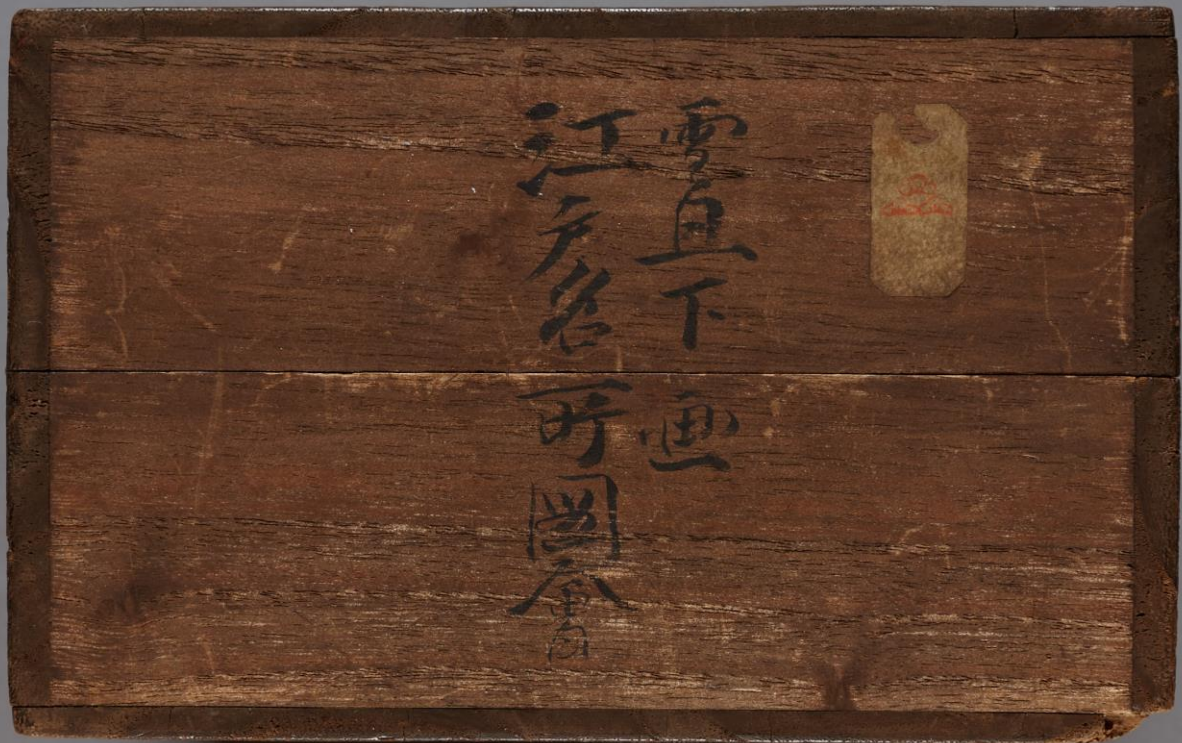 雪旦下画
江戸名所圖會